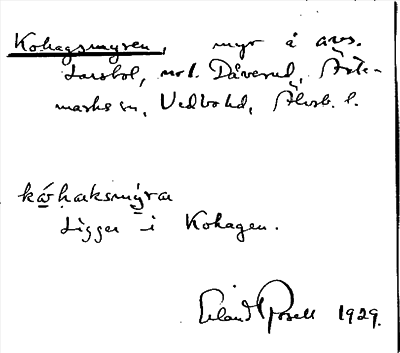 Kohagsmyren, myr å ägs.
Larsbol, nol. Dåverud, Ärte-
marks sn, Vedbo hd, Älvsb. l.
kóhaksmýra
Ligger i Kohagen.
Erland Rosell 1929.